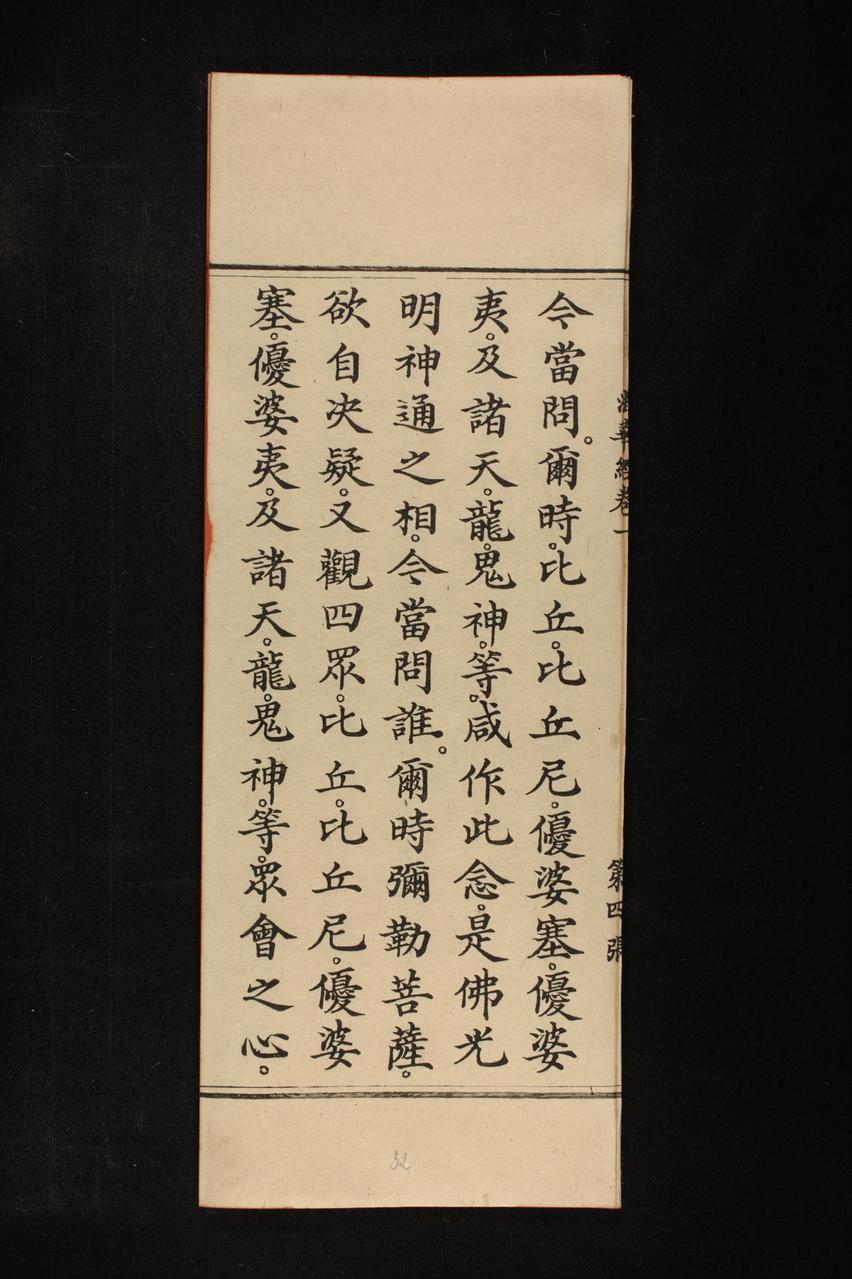 法華經卷一 第四張
今當問。爾時比丘。比丘尼。優婆塞。優婆
夷。及諸天。龍。鬼神。等。咸作此念。是佛光
明神通之相。今當問誰。爾時彌勒菩薩。
欲自决疑。又觀四眾。比丘。比丘尼。優婆
塞。優婆夷。及諸天。龍。鬼神。等。眾會之心。
32